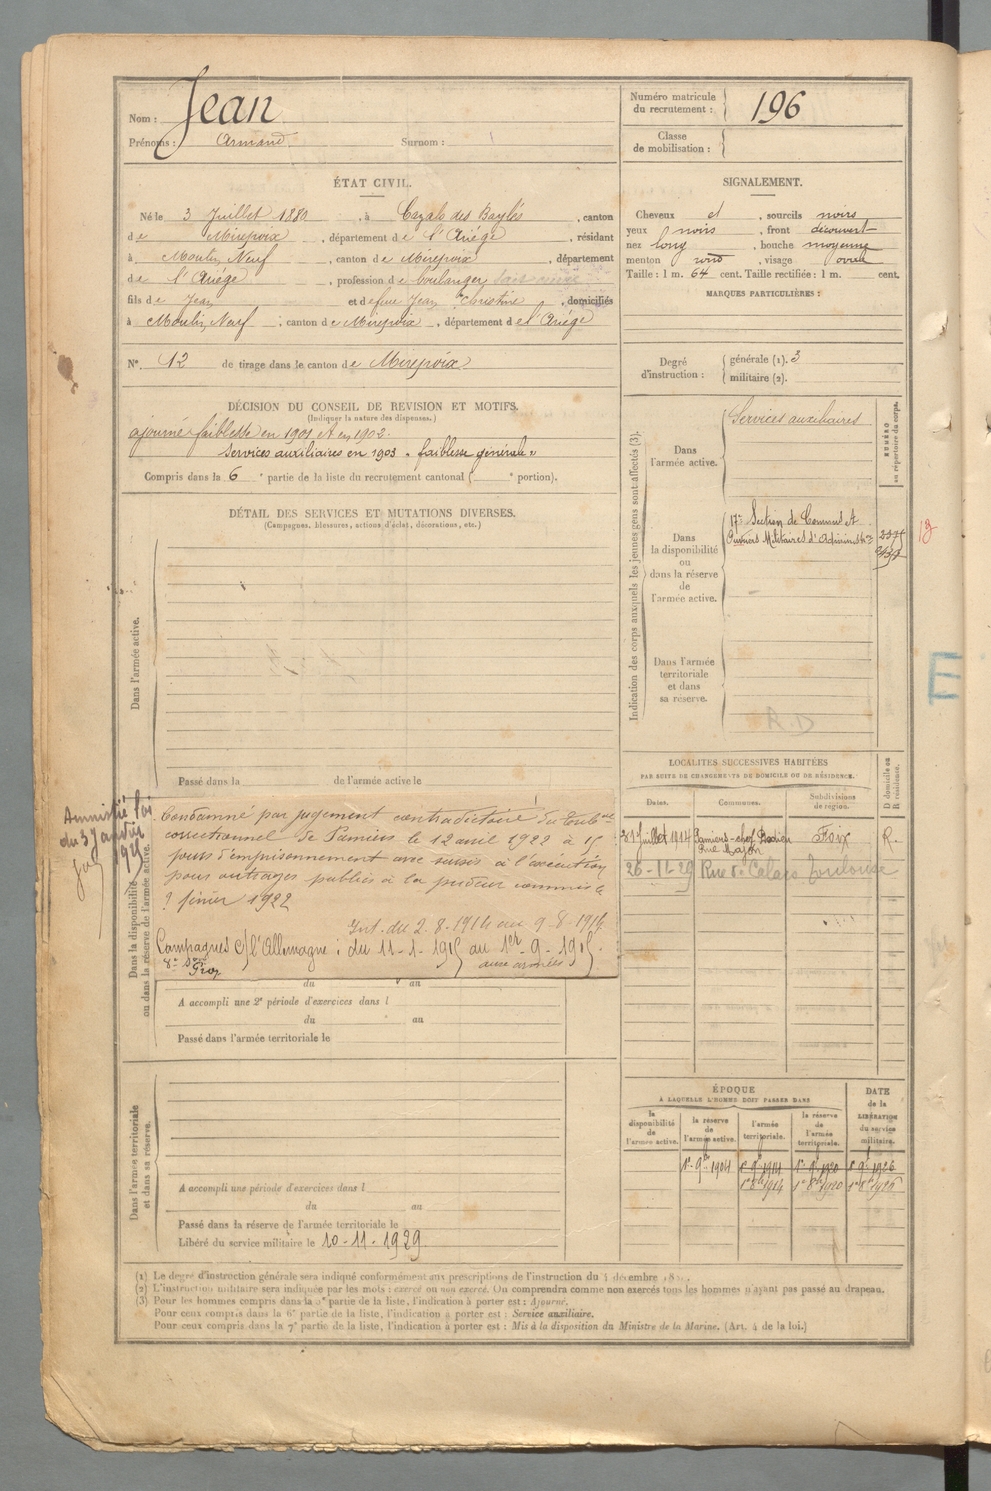 Nom : Jean
Prénoms : Armand Surnom :
ÉTAT CIVIL.
Né le 3 Juillet 1880, à Cazals des Baylès, canton
de Mirepoix, département de l'Ariège, résidant
à Moulin Neuf, canton de Mirepoix, département
de l'Ariège, profession de boulanger
fils de Jean et de feue Jean Christine, domiciliés
à Moulin Neuf, canton de Mirepoix, département de l'Ariège
N° 12 de tirage dans le canton de Mirepoix
DÉCISION DU CONSEIL DE REVISION ET MOTIFS.
(Indiquer la nature des dispenses.)
ajourné faiblesse en 1901 et en 1902.
Services auxiliaires en 1903 « faiblesse générale »
Compris dans la 6e partie de la liste du recrutement cantonal ( e portion).
DÉTAIL DES SERVICES ET MUTATIONS DIVERSES.
(Campagnes, blessures, actions d'éclat, décorations, etc.)
Dans l'armée active.
Passé dans la de l'armée active le
Amnistié loi
du 3 Janvier
1925
Dans la disponibilité
ou dans la réserve de l'armée active.
Condamné par jugement contradictoire du Tribunal
correctionnel de Pamiers le 12 avril 1922 à 15
jours d'emprisonnement avec sursis à l'exécution
pour outrages publics à la pudeur commis le
? février 1922
Int. du 2.8.1914 au 9-8-1914.
Campagnes c/ l'Allemagne : du 11-1-1915 au 1er-9-1915.
aux armées
du au
A accompli une 2e période d'exercices dans l
du au
Passé dans l'armée territoriale le
Dans l'armée territoriale
et dans sa réserve.
A accompli une période d'exercices dans l
du au
Passé dans la réserve de l'armée territoriale le
Libéré du service militaire le 10-11-1929
Numéro matricule
du recrutement : 196
Classe
de mobilisation :
SIGNALEMENT.
Cheveux et, sourcils noirs
yeux noirs, front découvert
nez long, bouche moyenne
menton rond, visage ovale
Taille : 1 m. 64 cent. Taille rectifiée : 1 m. cent.
MARQUES PARTICULIÈRES :
Degré
d'instruction :
générale (1). 3
militaire (2).
Indication des corps auxquels les jeunes gens sont affectés (3).
NUMÉRO
au répertoire du corps.
Dans
l'armée active.
Services auxiliaires
Dans
la disponibilité
ou
dans la réserve
de
l'armée active.
17e Section de Commis et
Ouvriers Militaires d'Administon
Dans l'armée
territoriale
et dans
sa réserve.
R.D
E
LOCALITÉS SUCCESSIVES HABITÉES
PAR SUITE DE CHANGEMENTS DE DOMICILE OU DE RÉSIDENCE.
D domicile ou
R résidence.
Dates. Communes. Subdivisions
de région.
31 Juillet 1914 Pamiers Foix R.
Rue Major
26-11-29 Rue de Calais Toulouse
ÉPOQUE
À LAQUELLE L'HOMME DOIT PASSER DANS
DATE
de la
LIBÉRATION
du service
militaire.
la
disponibilité
de
l'armée active.
la réserve
de
l'armée active.
l'armée
territoriale.
la réserve
de
l'armée
territoriale.
1er 9bre 1904 1er 9bre 1914 1er 9bre 1920 1er 9bre 1926
1er 8bre 1914 1er 8bre 1920 1er 8bre 1926
(1) Le degré d'instruction générale sera indiqué conformément aux prescriptions de l'instruction du
(2) L'instruction militaire sera indiquée par les mots : exercé ou non exercé. On comprendra comme non exercés tous les hommes n'ayant pas passé au drapeau.
(3) Pour les hommes compris dans la 5e partie de la liste, l'indication à porter est : Ajourné.
Pour ceux compris dans la 6e partie de la liste, l'indication à porter est : Service auxiliaire.
Pour ceux compris dans la 7e partie de la liste, l'indication à porter est : Mis à la disposition du Ministre de la Marine. (Art. 4 de la loi.)